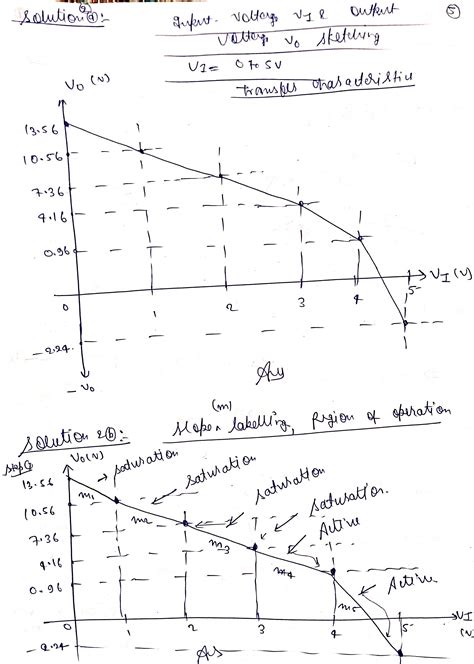 Solution 2a:-
Input Voltage VI & Output
Voltage Vo Sketching
5
VI = 0 To 5V
Transfer characteristics
Vo (V)
13.56
10.56
7.36
4.16
0.96
0
-2.24
-Vo
1
2
3
4
5
VI (V)
Ans
(m)
Solution 2b:- Slope labelling, Region of operation
Vo(V)
13.56
10.56
7.36
4.16
0.96
0
-2.24
saturation
saturation
saturation
saturation.
Active
Active
m1
m2
m3
m4
m5
1
2
3
4
5
VI
(V)
Ans